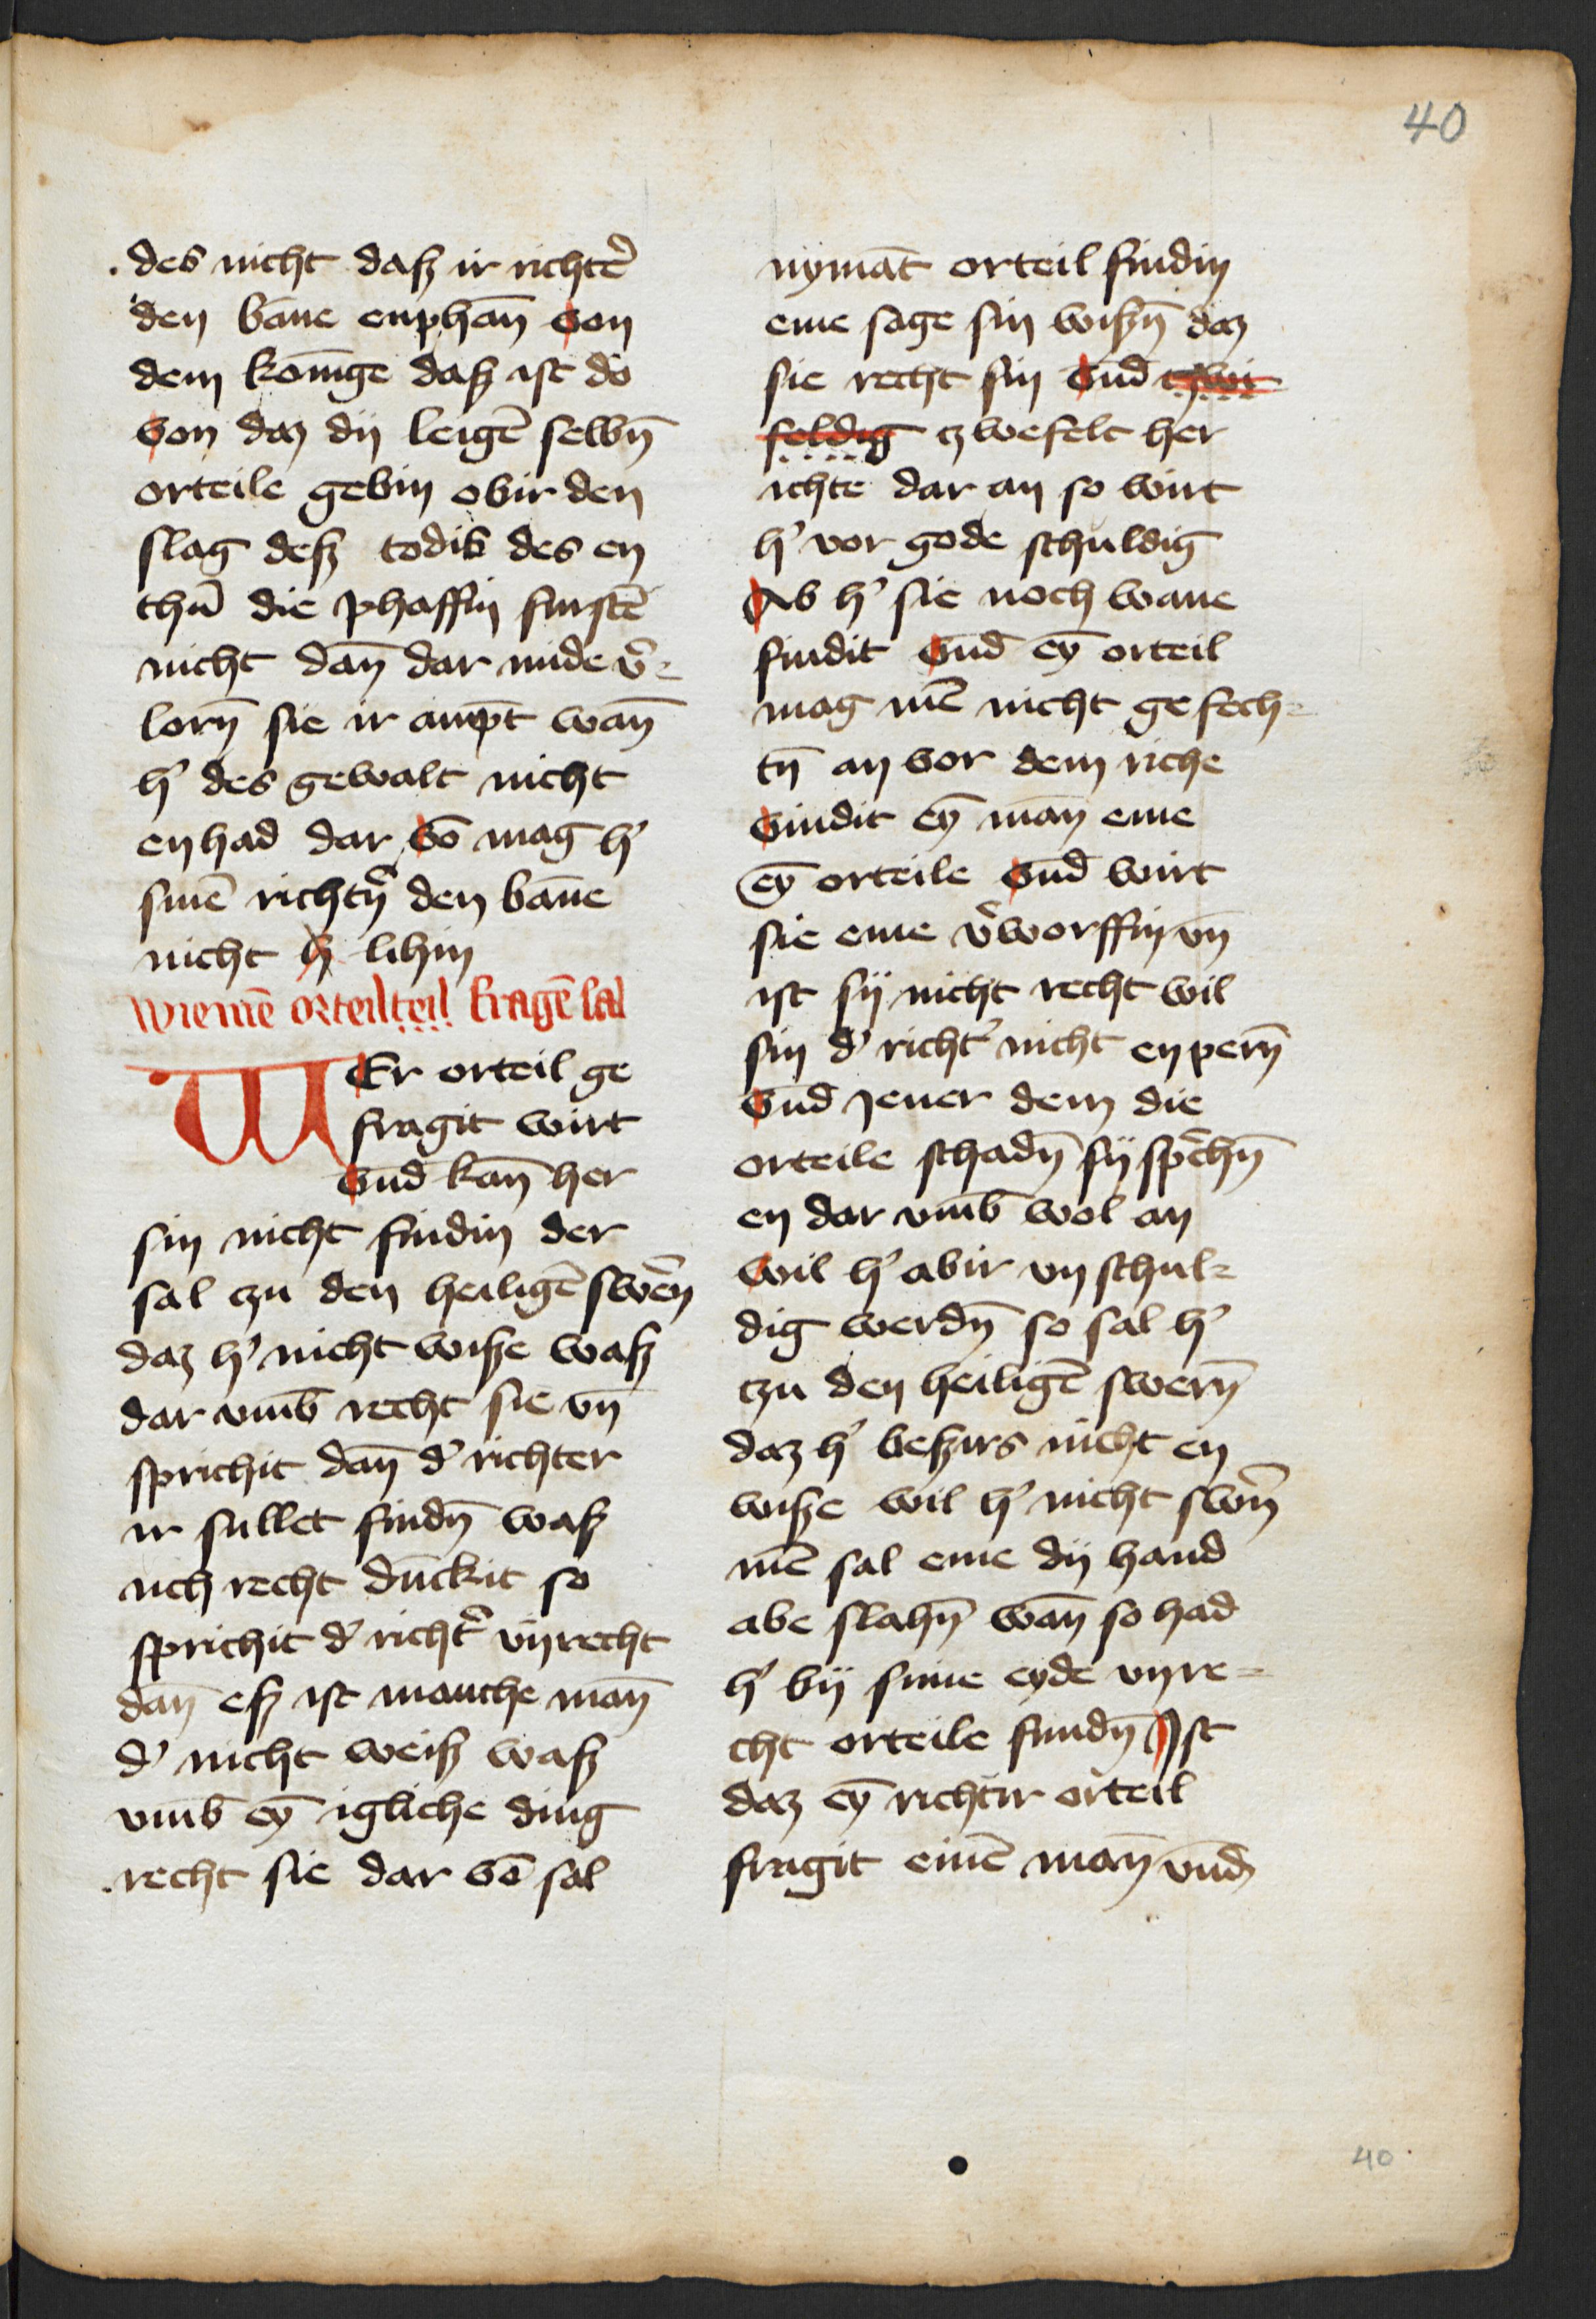 40
des nicht daß ir richt'e
den bāne enphān von
dem konīge daß ist do
von daz dij leigē selbn̄
orteile gebin obir den
slag deß todis des en
thū die phaffin furstē
nicht dan̄ dar mide v̓=
lorn̄ sie ir ampt wan̄
h' des gewalt nicht
en had dar vō mag h'
sinē richt'n den bāne
nicht h lihin
Wie mē orteil teil fragē sal
WEr orteil ge
fragit wirt
vnd kan̄ her
sin nicht findin der
sal czu den heiligē swēn
daz h' nicht wiße waß
dar vmb recht sie vn̄
sprichit dan̄ d' richter
ir sullet findn̄ waß
uch recht dūckit so
sprichit d' richt' vnrecht
dan̄ eß ist manche man̄
d' nicht weiß waß
vmb eȳ igliche ding
recht sie dar vō sal
nymāt orteil findin
eme sage sin wißn̄ daz
sie recht sin vnd tzwi
feldig tzwefelt her
ichte dar an so wirt
h' vor gode schuldig
Ab h' sie noch wane
findit vnd eȳ orteil
mag mē nicht gefech=
tn̄ an vor dem riche
vindit eȳ man̄ eme
eȳ orteile vnd wirt
sie eme v̓worffin vn̄
ist sij nicht recht wil
sin d' richt' nicht enpern̄
vnd Jener dem die
orteile schadn̄ sij sp̄chn̄
en dar vmb wol an
wil h' abir vnschul=
dig werdn̄ so sal h'
tzu den heiligē swern̄
daz h' beßirs nicht en
wiße wil h' nicht swn̄
mē sal eme dij hand
abe slahn̄ wan̄ so had
h' bij sime eyde vnre=
cht orteile fundn̄ Ist
daz eȳ richtir orteil
fragit einē man̄ vnd
40